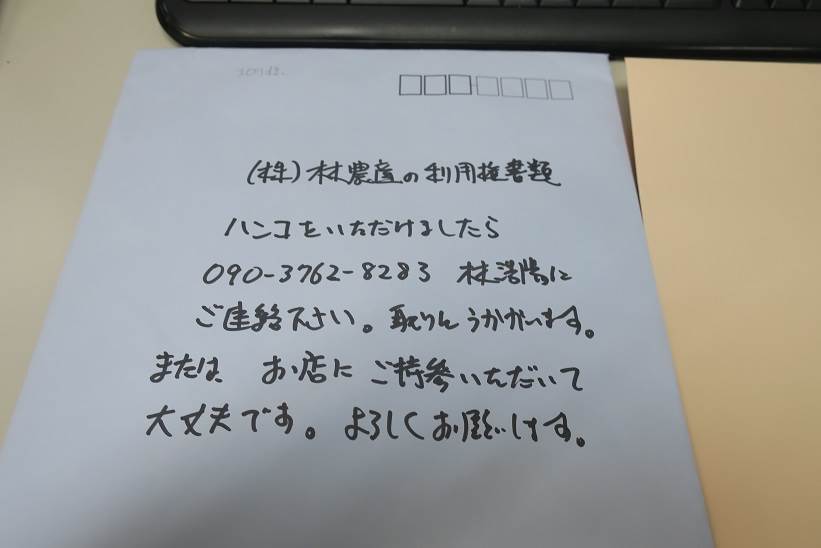 (株)林農産の利用権書類
ハンコをいただけましたら
090-3762-8283 林浩陽に
ご連絡下さい。取りに うかがいます。
または お店に ご持参いただいて
大丈夫です。よろしくお願いします。